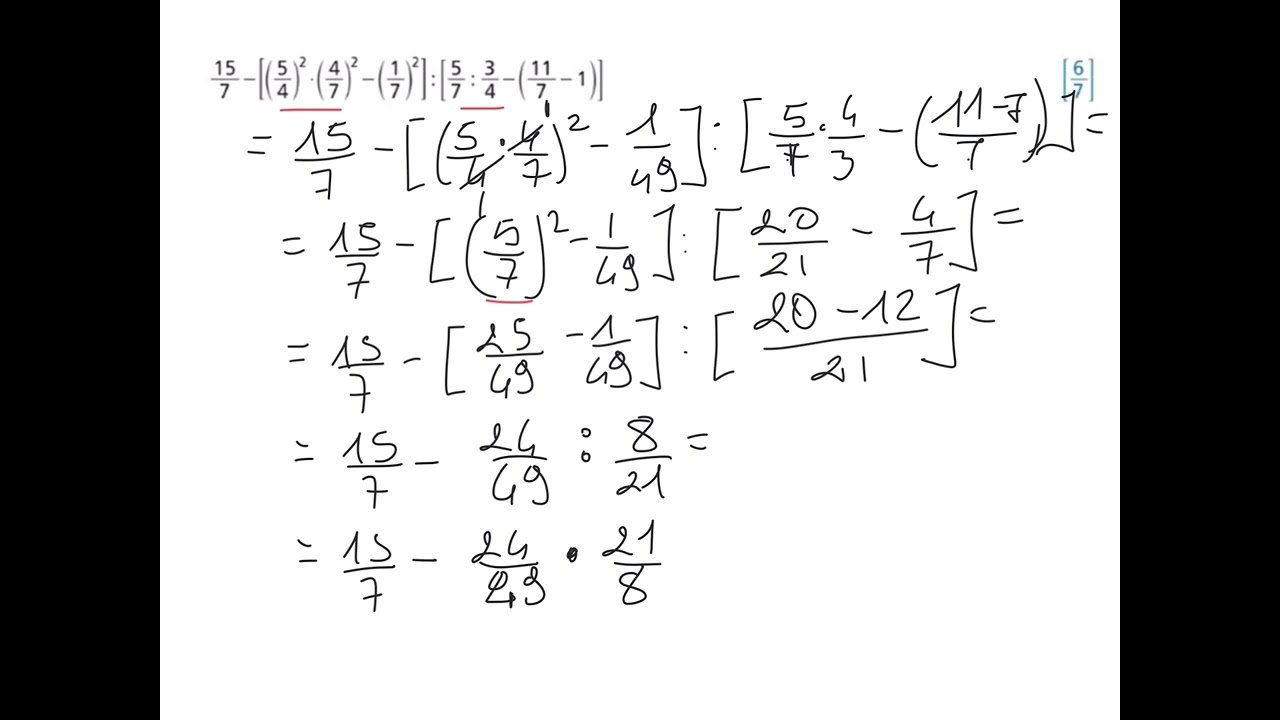 15/7 − [(5/4)² · (4/7)² − (1/7)²] : [5/7 : 3/4 − (11/7 − 1)] [6/7]
= 15/7 − [(5/4 · 4/7)² − 1/49] : [5/7 · 4/3 − (11−7/7)] =
= 15/7 − [(5/7)² − 1/49] : [20/21 − 4/7] =
= 15/7 − [25/49 − 1/49] : [20 − 12/21] =
= 15/7 − 24/49 : 8/21 =
= 15/7 − 24/49 · 21/8